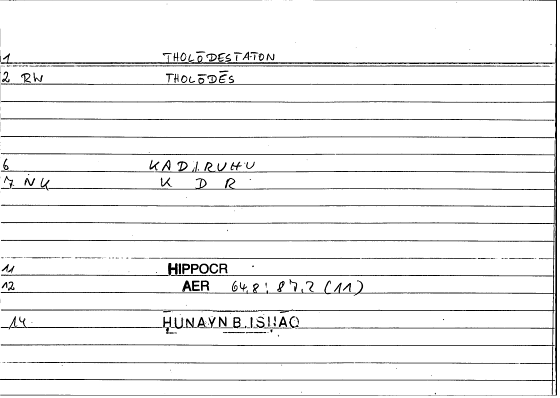 1 THOLŌDESTATON
2 RW THOLŌDĒS
6 KADIRUHU
7 NK K D R
11 HIPPOCR
12 AER 64,8; 87,2 (11)
14 ḤUNAYN B. ISḤĀQ